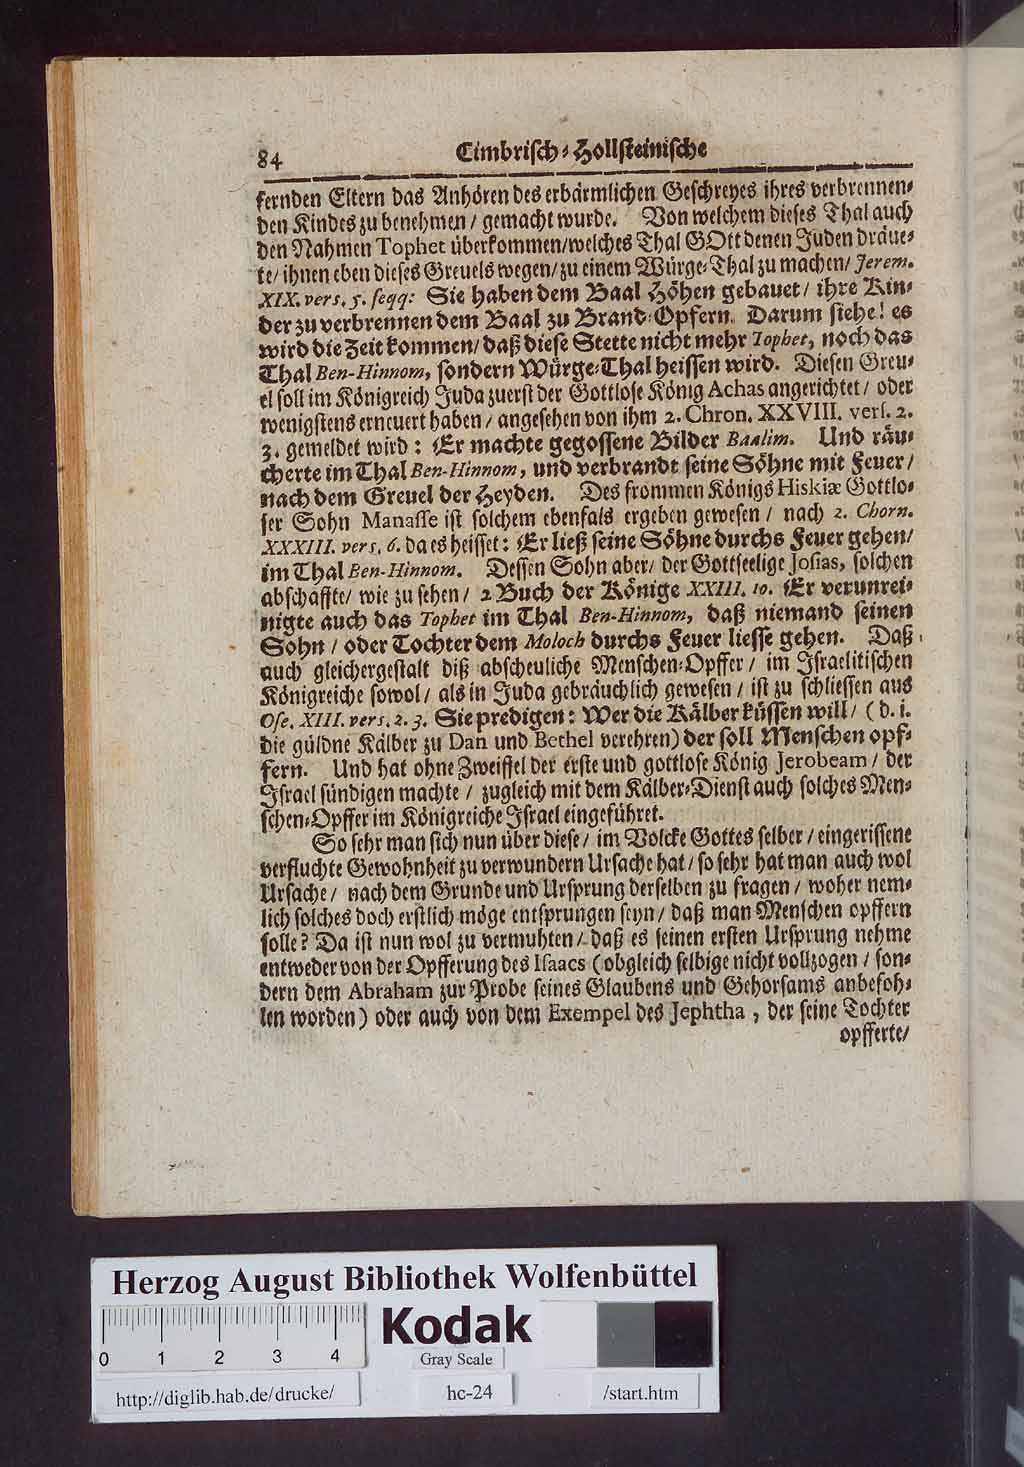 84 Cimbrisch-Hollsteinische
fernden Eltern das Anhören des erbärmlichen Geschreyes ihres verbrennen-
den Kindes zu benehmen / gemacht wurde. Von welchem dieses Thal auch
den Nahmen Tophet überkommen/welches Thal GOtt denen Juden dräue-
te/ ihnen eben dieses Greuels wegen/ zu einem Würge-Thal zu machen/ Jerem.
XIX. vers. 5. seqq: Sie haben dem Baal Höhen gebauet/ ihre Kin-
der zu verbrennen dem Baal zu Brand-Opfern. Darum siehe! es
wird die Zeit kommen/ daß diese Stette nicht mehr Tophet, noch das
Thal Ben-Hinnom, sondern Würge-Thal heissen wird. Diesen Greu-
el soll im Königreich Juda zuerst der Gottlose König Achas angerichtet/ oder
wenigstens erneuert haben/ angesehen von ihm 2. Chron. XXVIII. vers. 2.
3. gemeldet wird: Er machte gegossene Bilder Baalim. Und räu-
cherte im Thal Ben-Hinnom, und verbrandt seine Söhne mit Feuer/
nach dem Greuel der Heyden. Des frommen Königs Hiskiæ Gottlo-
ser Sohn Manasse ist solchem ebenfals ergeben gewesen/ nach 2. Chorn.
XXXIII. vers. 6. da es heisset: Er ließ seine Söhne durchs Feuer gehen/
im Thal Ben-Hinnom. Dessen Sohn aber/ der Gottseelige Josias, solchen
abschaffte/ wie zu sehen/ 2 Buch der Könige XXIII. 10. Er verunrei-
nigte auch das Tophet im Thal Ben-Hinnom, daß niemand seinen
Sohn / oder Tochter dem Moloch durchs Feuer liesse gehen. Daß
auch gleichergestalt diß abscheuliche Menschen-Opffer/ im Israelitischen
Königreiche sowol/ als in Juda gebräuchlich gewesen / ist zu schliessen aus
Ose. XIII. vers. 2. 3. Sie predigen: Wer die Kälber küssen will/ (d. i.
die güldne Kälber zu Dan und Bethel verehren) der soll Menschen opf-
fern. Und hat ohne Zweiffel der erste und gottlose König Jerobeam/ der
Israel sündigen machte/ zugleich mit dem Kälber-Dienst auch solches Men-
schen-Opffer im Königreiche Israel eingeführet.
So sehr man sich nun über diese/ im Volcke Gottes selber/ eingerissene
verfluchte Gewohnheit zu verwundern Ursache hat/ so sehr hat man auch wol
Ursache/ nach dem Grunde und Ursprung derselben zu fragen/ woher nem-
lich solches doch erstlich möge entsprungen seyn/ daß man Menschen opffern
solle? Da ist nun wol zu vermuhten/ daß es seinen ersten Ursprung nehme
entweder von der Opfferung des Isaacs (obgleich selbige nicht vollzogen/ son-
dern dem Abraham zur Probe seines Glaubens und Gehorsams anbefoh-
len worden) oder auch von dem Exempel des Jephtha, der seine Tochter
opfferte/
Herzog August Bibliothek Wolfenbüttel
0 1 2 3 4
Kodak
Gray Scale
http://diglib.hab.de/drucke/ hc-24 /start.htm